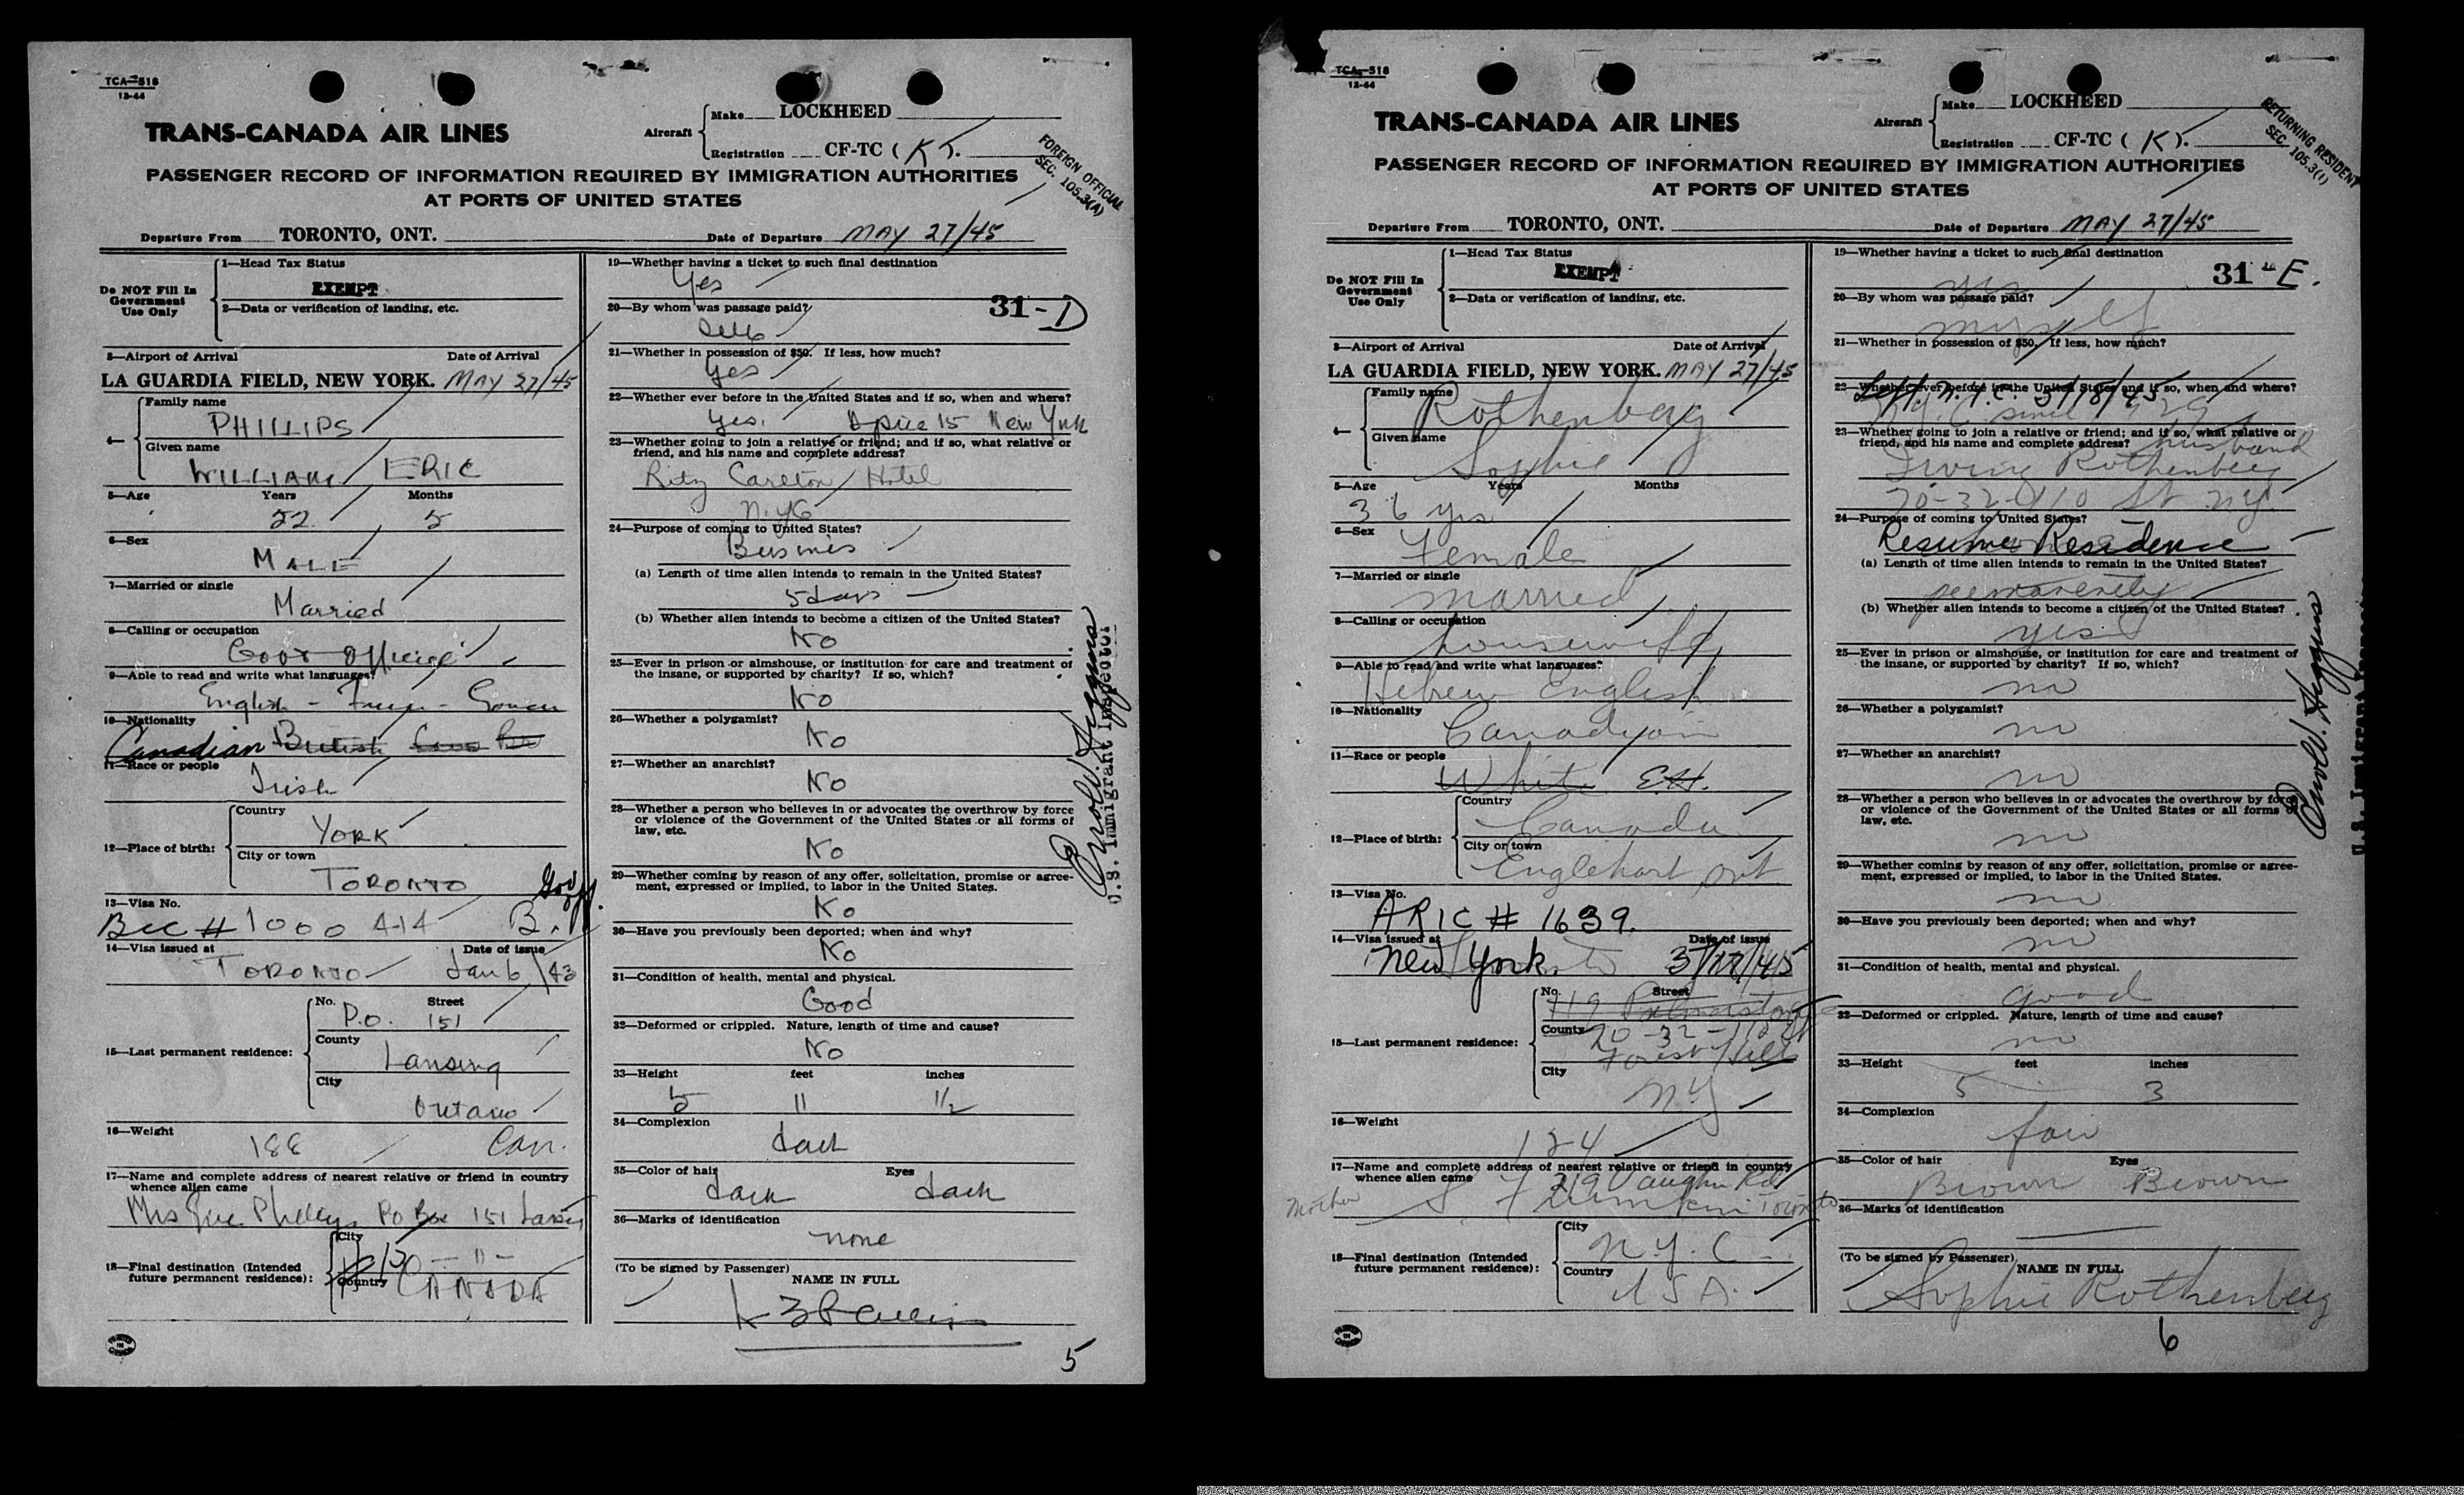 TCA-518
12-44
TRANS-CANADA AIR LINES
Aircraft
Make LOCKHEED
Registration CF-TC (K).
FOREIGN OFFICIAL
SEC. 105.3(A)
PASSENGER RECORD OF INFORMATION REQUIRED BY IMMIGRATION AUTHORITIES
AT PORTS OF UNITED STATES
Departure From TORONTO, ONT. Date of Departure MAY 27/45
Do NOT Fill In
Government
Use Only
1—Head Tax Status
EXEMPT
2—Data or verification of landing, etc.
3—Airport of Arrival Date of Arrival
LA GUARDIA FIELD, NEW YORK. MAY 27/45
4—
Family name
PHILLIPS
Given name
WILLIAM ERIC
5—Age Years Months
52 5
6—Sex
MALE
7—Married or single
Married
8—Calling or occupation
Govt
9—Able to read and write what languages?
English -
10—Nationality
Canadian British
11—Race or people
Irish
12—Place of birth:
Country
YORK
City or town
TORONTO
13—Visa No.
BCC # 1000 414
14—Visa issued at Date of issue
TORONTO Jan 6/43
15—Last permanent residence:
No. Street
P.O. 151
County
Lansing
City
Ontario
Can.
16—Weight
188
17—Name and complete address of nearest relative or friend in country
whence alien came
Mrs Phillips PO Box 151
18—Final destination (Intended
future permanent residence):
City
- " -
Country
CANADA
19—Whether having a ticket to such final destination
Yes
31-D
20—By whom was passage paid?
Self
21—Whether in possession of $50. If less, how much?
Yes
22—Whether ever before in the United States and if so, when and where?
Yes. April 15 New York
23—Whether going to join a relative or friend; and if so, what relative or
friend, and his name and complete address?
Ritz Carlton Hotel
N.Y.C
24—Purpose of coming to United States?
Business
(a) Length of time alien intends to remain in the United States?
5 days
(b) Whether alien intends to become a citizen of the United States?
No
25—Ever in prison or almshouse, or institution for care and treatment of
the insane, or supported by charity? If so, which?
No
26—Whether a polygamist?
No
27—Whether an anarchist?
No
28—Whether a person who believes in or advocates the overthrow by force
or violence of the Government of the United States or all forms of
law, etc.
No
29—Whether coming by reason of any offer, solicitation, promise or agree-
ment, expressed or implied, to labor in the United States.
No
30—Have you previously been deported; when and why?
No
31—Condition of health, mental and physical.
Good
32—Deformed or crippled. Nature, length of time and cause?
No
33—Height feet inches
5 11 1/2
34—Complexion
dark
35—Color of hair Eyes
dark dark
36—Marks of identification
none
(To be signed by Passenger)
NAME IN FULL
5
U.S. Immigrant Inspector
TCA-518
12-44
TRANS-CANADA AIR LINES
Aircraft
Make LOCKHEED
Registration CF-TC (K).
RETURNING RESIDENT
SEC. 105.3(1)
PASSENGER RECORD OF INFORMATION REQUIRED BY IMMIGRATION AUTHORITIES
AT PORTS OF UNITED STATES
Departure From TORONTO, ONT. Date of Departure MAY 27/45
Do NOT Fill In
Government
Use Only
1—Head Tax Status
EXEMPT
2—Data or verification of landing, etc.
3—Airport of Arrival Date of Arrival
LA GUARDIA FIELD, NEW YORK. MAY 27/45
4—
Family name
Rothenberg
Given name
Sophie
5—Age Years Months
36 yrs
6—Sex
Female
7—Married or single
married
8—Calling or occupation
housewife
9—Able to read and write what languages?
Hebrew English
10—Nationality
Canadian
11—Race or people
White
12—Place of birth:
Country
Canada
City or town
Englehart Ont
13—Visa No.
ARIC # 1639.
14—Visa issued at Date of issue
New York
15—Last permanent residence:
No. Street
119 Palmerston
County
70-32-110 St
Forest Hills
City
N.Y
16—Weight
124
17—Name and complete address of nearest relative or friend in country
whence alien came
319 Vaughn Rd
Mother Toronto
18—Final destination (Intended
future permanent residence):
City
N.Y.C
Country
USA.
19—Whether having a ticket to such final destination
yes
31-E.
20—By whom was passage paid?
myself
21—Whether in possession of $50. If less, how much?
22—Whether ever before in the United States and if so, when and where?
Left N.Y.C. 3/18/45
N.Y.C since 1929
23—Whether going to join a relative or friend; and if so, what relative or
friend, and his name and complete address?
husband
Irving Rothenberg
70-32-110 St N.Y.
24—Purpose of coming to United States?
Resume Residence
(a) Length of time alien intends to remain in the United States?
permanently
(b) Whether alien intends to become a citizen of the United States?
yes
25—Ever in prison or almshouse, or institution for care and treatment of
the insane, or supported by charity? If so, which?
no
26—Whether a polygamist?
no
27—Whether an anarchist?
no
28—Whether a person who believes in or advocates the overthrow by force
or violence of the Government of the United States or all forms of
law, etc.
no
29—Whether coming by reason of any offer, solicitation, promise or agree-
ment, expressed or implied, to labor in the United States.
no
30—Have you previously been deported; when and why?
no
31—Condition of health, mental and physical.
good
32—Deformed or crippled. Nature, length of time and cause?
no
33—Height feet inches
5 3
34—Complexion
fair
35—Color of hair Eyes
Brown Brown
36—Marks of identification
(To be signed by Passenger)
NAME IN FULL
Sophie Rothenberg
6